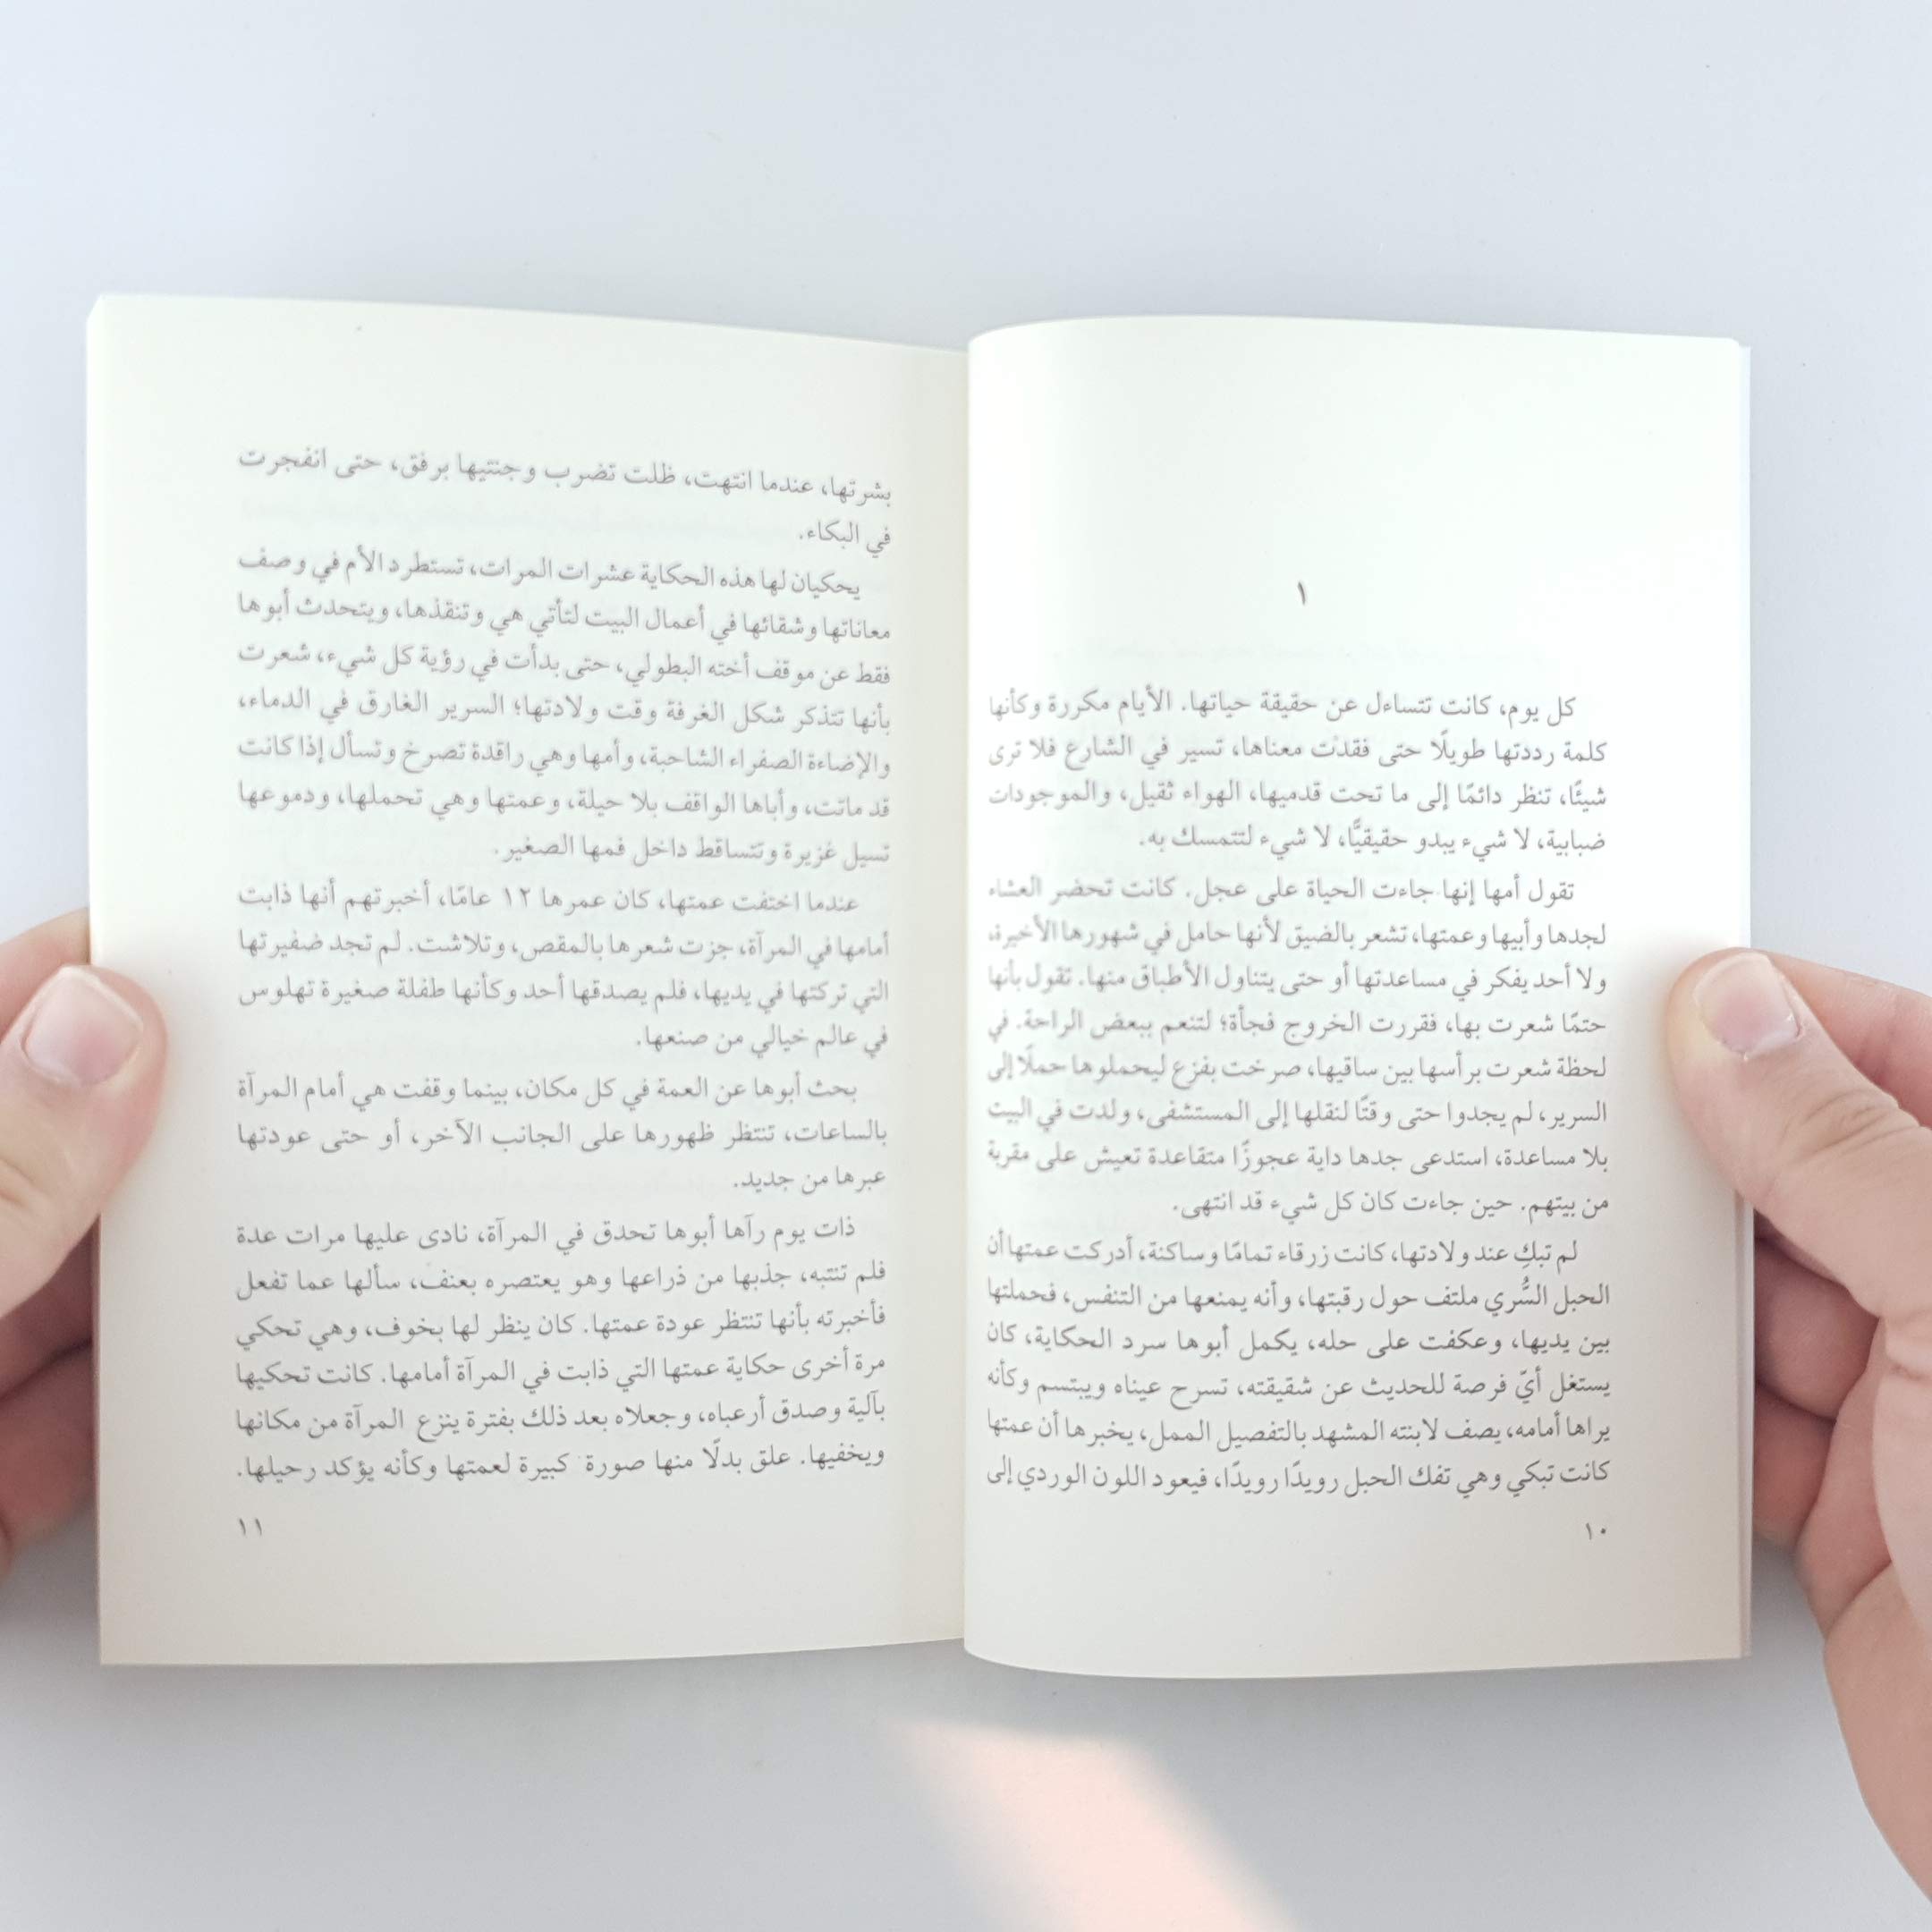 ١
كل يوم، كانت تتساءل عن حقيقة حياتها. الأيام مكررة وكأنها
كلمة رددتها طويلًا حتى فقدت معناها، تسير في الشارع فلا ترى
شيئًا، تنظر دائمًا إلى ما تحت قدميها، الهواء ثقيل، والموجودات
ضبابية، لا شيء يبدو حقيقيًّا، لا شيء لتتمسك به.
تقول أمها إنها جاءت الحياة على عجل. كانت تحضر العشاء
لجدها وأبيها وعمتها، تشعر بالضيق لأنها حامل في شهورها الأخيرة،
ولا أحد يفكر في مساعدتها أو حتى يتناول الأطباق منها. تقول بأنها
حتمًا شعرت بها، فقررت الخروج فجأة؛ لتنعم ببعض الراحة. في
لحظة شعرت برأسها بين ساقيها، صرخت بفزع ليحملوها حملًا إلى
السرير، لم يجدوا حتى وقتًا لنقلها إلى المستشفى، ولدت في البيت
بلا مساعدة، استدعى جدها داية عجوزًا متقاعدة تعيش على مقربة
من بيتهم. حين جاءت كان كل شيء قد انتهى.
لم تبكِ عند ولادتها، كانت زرقاء تمامًا وساكنة، أدركت عمتها أن
الحبل السُّري ملتف حول رقبتها، وأنه يمنعها من التنفس، فحملتها
بين يديها، وعكفت على حله، يكمل أبوها سرد الحكاية، كان
يستغل أيّ فرصة للحديث عن شقيقته، تسرح عيناه ويبتسم وكأنه
يراها أمامه، يصف لابنته المشهد بالتفصيل الممل، يخبرها أن عمتها
كانت تبكي وهي تفك الحبل رويدًا رويدًا، فيعود اللون الوردي إلى
١٠
بشرتها، عندما انتهت، ظلت تضرب وجنتيها برفق، حتى انفجرت
في البكاء.
يحكيان لها هذه الحكاية عشرات المرات، تستطرد الأم في وصف
معاناتها وشقائها في أعمال البيت لتأتي هي وتنقذها، ويتحدث أبوها
فقط عن موقف أخته البطولي، حتى بدأت في رؤية كل شيء، شعرت
بأنها تتذكر شكل الغرفة وقت ولادتها؛ السرير الغارق في الدماء،
والإضاءة الصفراء الشاحبة، وأمها وهي راقدة تصرخ وتسأل إذا كانت
قد ماتت، وأباها الواقف بلا حيلة، وعمتها وهي تحملها، ودموعها
تسيل غزيرة وتتساقط داخل فمها الصغير.
عندما اختفت عمتها، كان عمرها ١٢ عامًا، أخبرتهم أنها ذابت
أمامها في المرآة، جزت شعرها بالمقص، وتلاشت. لم تجد ضفيرتها
التي تركتها في يديها، فلم يصدقها أحد وكأنها طفلة صغيرة تهلوس
في عالم خيالي من صنعها.
بحث أبوها عن العمة في كل مكان، بينما وقفت هي أمام المرآة
بالساعات، تنتظر ظهورها على الجانب الآخر، أو حتى عودتها
عبرها من جديد.
ذات يوم رآها أبوها تحدق في المرآة، نادى عليها مرات عدة
فلم تنتبه، جذبها من ذراعها وهو يعتصره بعنف، سألها عما تفعل
فأخبرته بأنها تنتظر عودة عمتها. كان ينظر لها بخوف، وهي تحكي
مرة أخرى حكاية عمتها التي ذابت في المرآة أمامها. كانت تحكيها
بآلية وصدق أرعباه، وجعلاه بعد ذلك بفترة ينزع المرآة من مكانها
ويخفيها. علق بدلًا منها صورة كبيرة لعمتها وكأنه يؤكد رحيلها.
١١